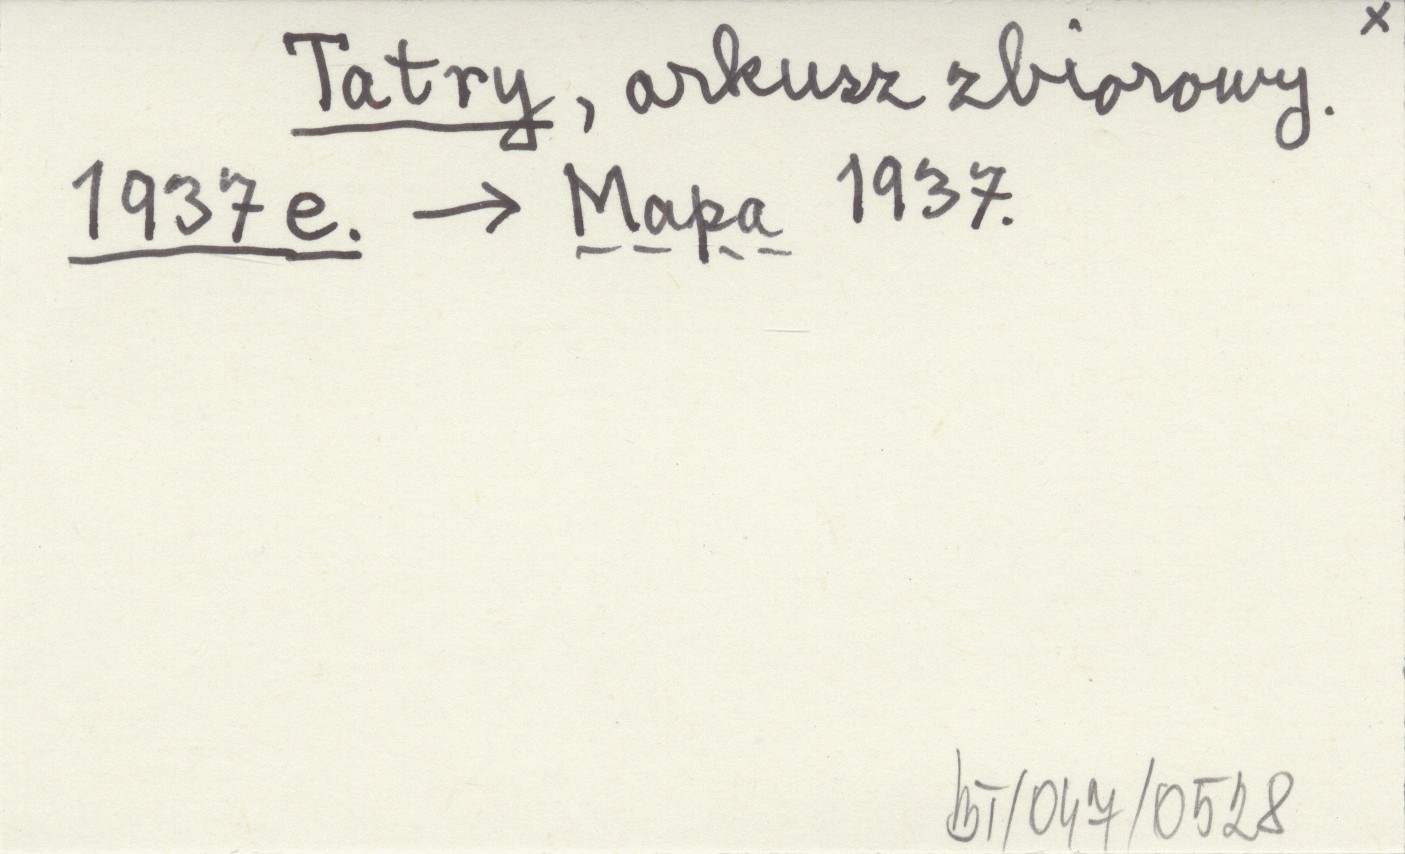 x
Tatry, arkusz zbiorowy.
1937 e. → Mapa 1937.
BT/047/0528